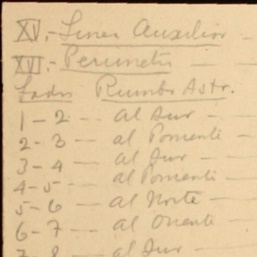 XV.- Linea Auxiliar -
XVI.- Perimetro -
Lados Rumbo Astr.
1-2 -- al Sur -
2-3 -- al Poniente -
3-4 -- al Sur -
4-5 -- al Poniente -
5-6 -- al Norte -
6-7 -- al Oriente -
7-8 -- al Sur -